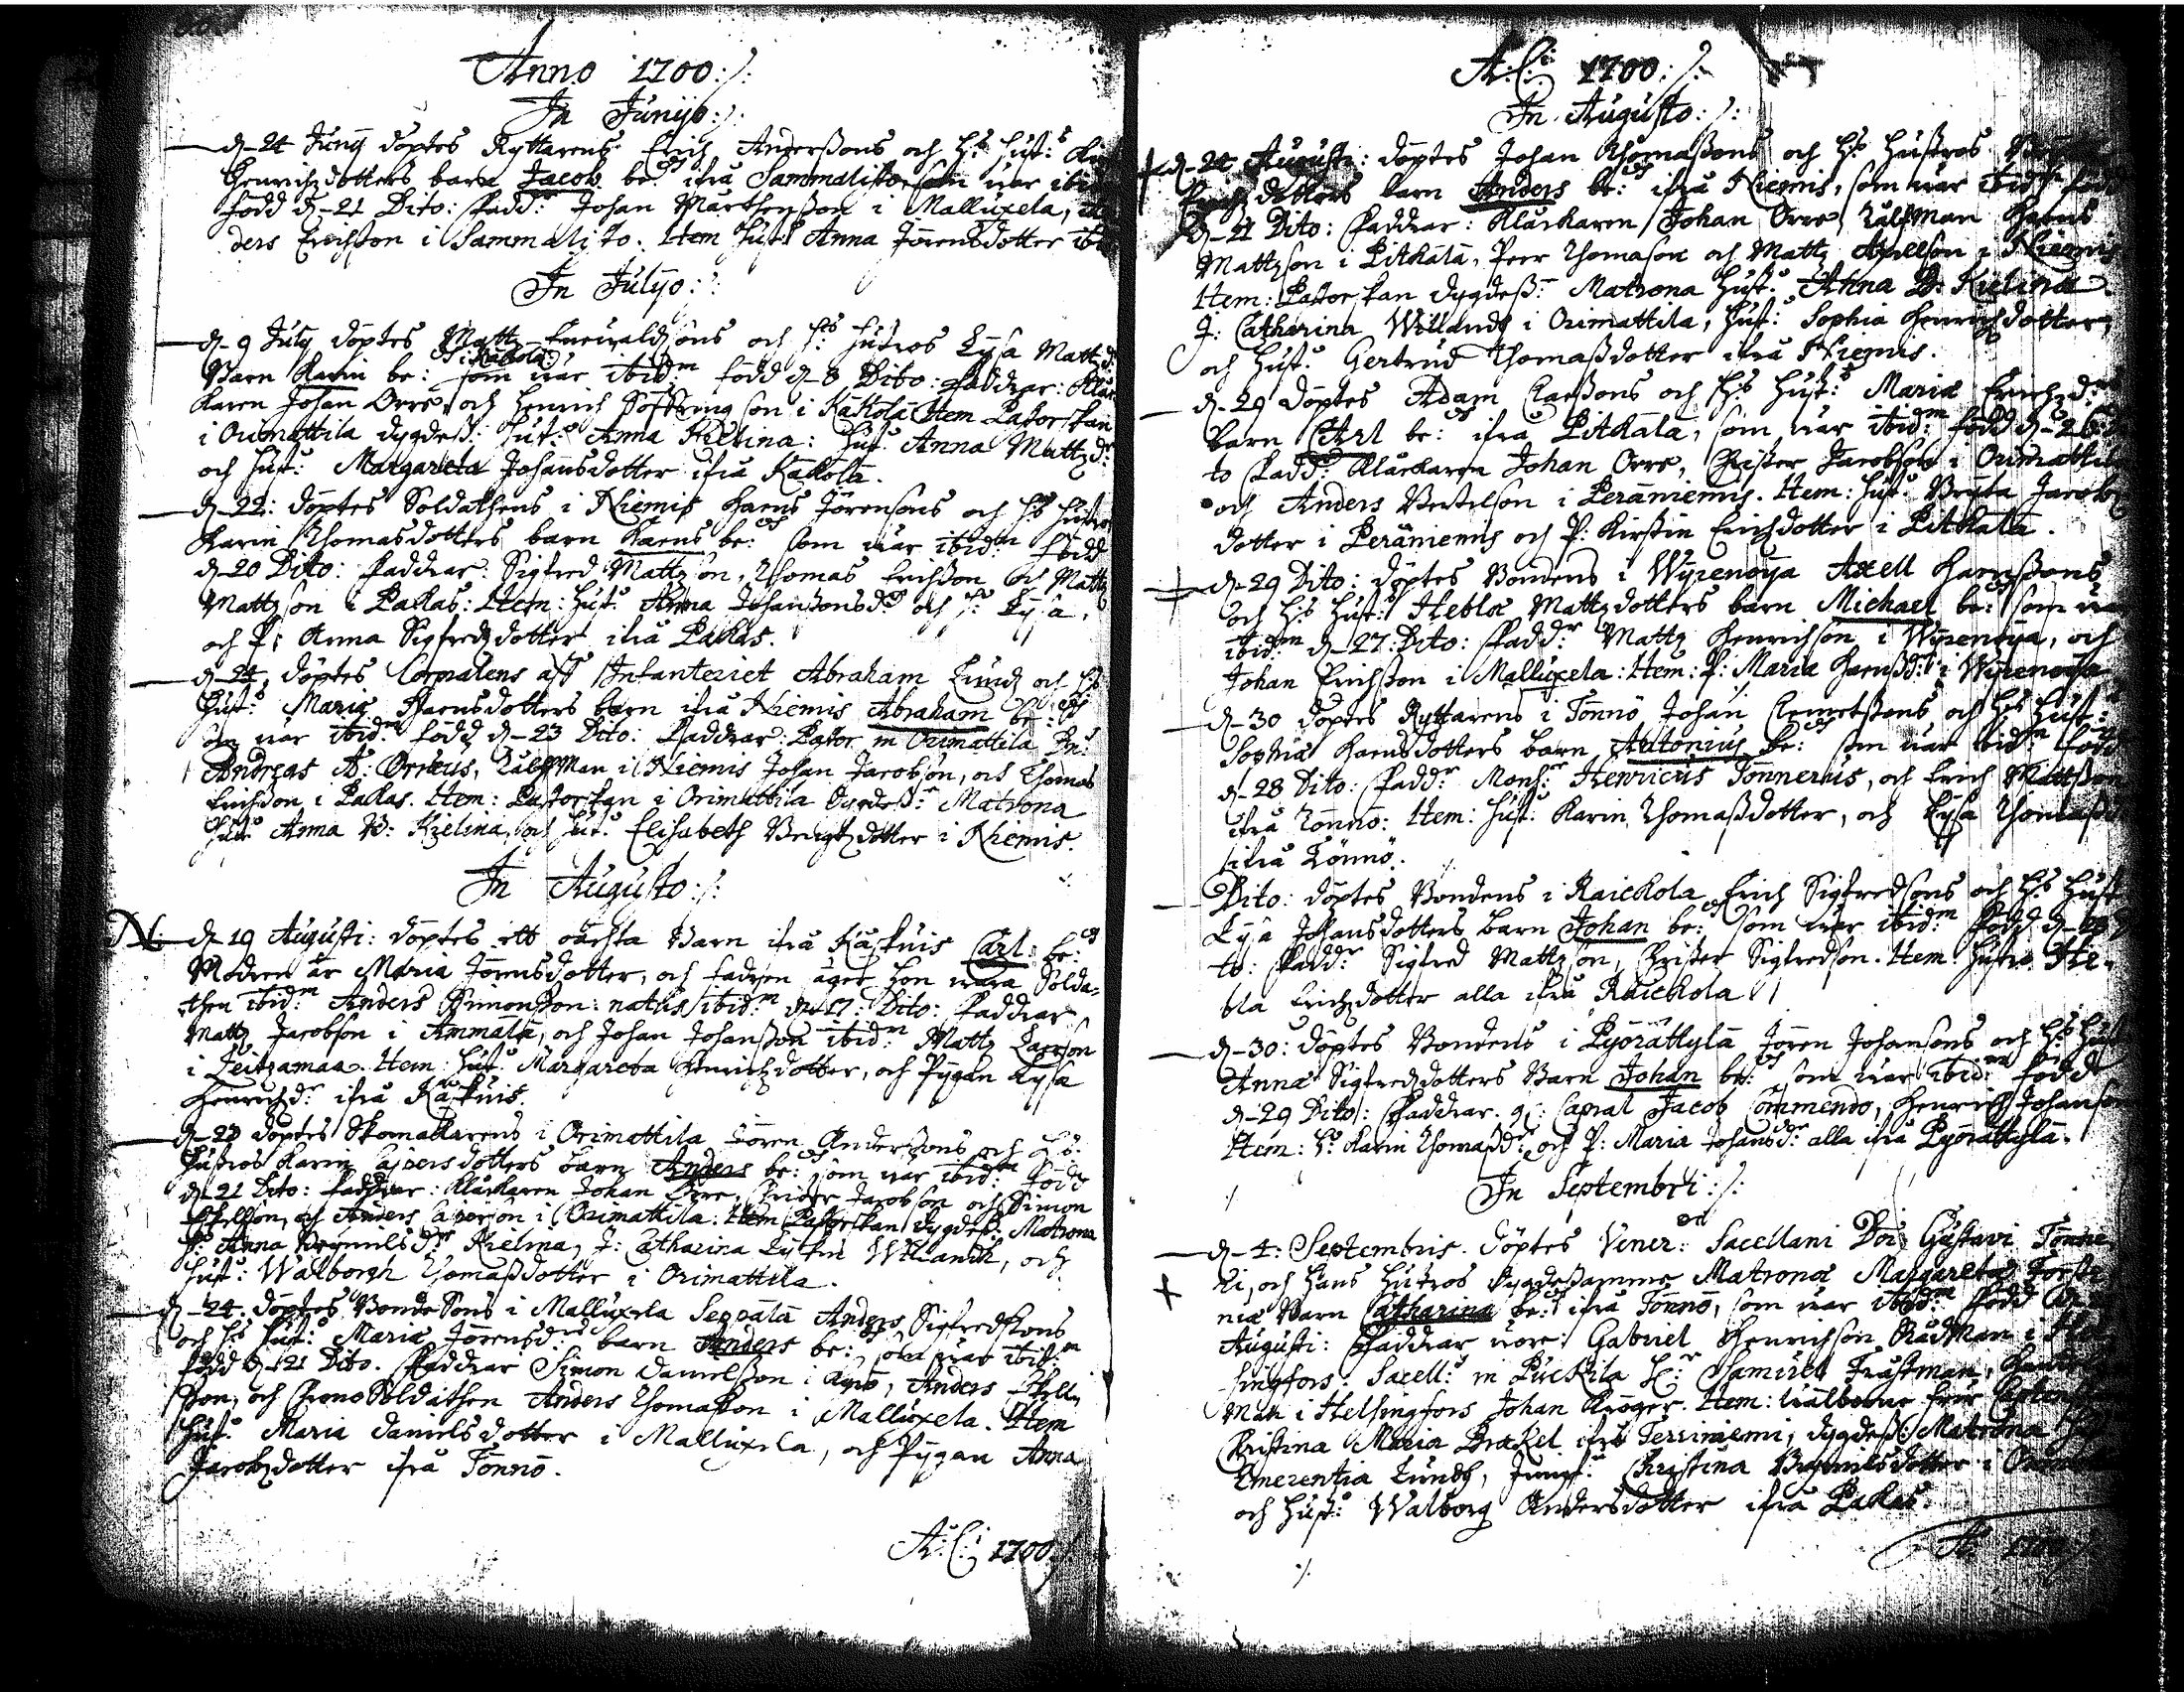 Anno 1700:/:
In Junijo:/:
d. 24 Junij döptes Ryttarens Erich Anderßons och H:s Hust:s
Henrichzdotters barn Jacob be:d ifrå Sammalisto, som war ibid
född d. 21 Dito: Fadd:r Johan Mårthenßon i Malluxela,
ders Erichßon i Sammalisto. Item Hust: Anna Jörensdotter
In Julijo:/:
d. 9 July döptes Mattz Enevaldzsons och h:s Hustros Lijsa Mattzd:
Barn Karin be: i Käkölä som war ibid:m född d. 8 Dito: Faddrar: Klåc
karen Johan Orre, och Henrich Söffringson i Käkölä Item Pastorskan
i Orimattila dygdeß: Hust: Anna Kielina: Hust: Anna Mattzd:r
och Hust: Margareta Johansdotter ifrå Käkölä.
d. 22: döptes Soldathens i Niemis Hans Jörensons och h:s Hustro
Karin Thomasdotters barn Hans be: som war ibid:m född
d. 20 Dito: Faddrar: Sigfred Mattzson, Thomas Erichßon och Mattz
Mattzson i Pakas: Item: Hust: Anna Johanßonsd:r och H: Lysa,
och P: Anna Sigfredzdotter ifrå Pakas.
d. 24, döptes Corpralens aff Infanteriet Abraham Lund och h:s
Hust:s Maria Hansdotters barn ifrå Niemis Abraham be:
som war ibid:m född d. 23 Dito: Faddrar: Pastor in Orimattila Dn:
Andreas A: Orræus, Länßman i Niemis Johan Jacobson, och Thomas
Erichßon i Pakas. Item: Pastorskan i Orimattila Dygdeß:r Matrona
Hust: Anna B: Kielina, och Hust: Elisabeth Bengtzdotter i Niemis.
In Augusto:/:
N: d. 19 Augusti: döptes ett oächta Barn ifrå Käskuis Carl be:
Modren är Maria Jörensdotter, och fadren äger hon wara Solda-
then ibid:m Anders Simonßon: natus ibid:m d. 17: Dito: Faddrar
Mattz Jacobson i Ammälä, och Johan Johanßon ibid:m Mattz Larson
i Leitzamaa. Item: Hust: Margareta Henrichzdotter, och Pygan Lysa
Henrichzd:r ifrå Käskuis.
d. 23 döptes Skomakarens i Orimattila Jören Anderßons och H:s
Hustros Karin Caspersdotters barn Anders be: som war ibid:m född
d. 21 Dito: Faddrar: Klåckaren Johan Orre, Christer Jacobson och Simon
Eskelßon, och Anders Casperson i Orimattila: Item Pastorskan dygdeß: Matrona
H: Anna Brynnilsd:r Kielina, J: Catharina Willandh, och
Hust: Walborgh Thomaßdotter i Orimattila.
d. 24. döptes BondeSons i Malluxela Seppälä Anders Sigfredßons
och h:s Hust:s Maria Jörensd:rs barn Anders be: som war ibid:m
född d. 21 Dito. Faddrar Simon Danielßon i, Anders
ßon, och Chrono Soldathen Anders Thomaßon i Malluxela. Item
Hust: Maria Danielsdotter i Malluxela, och Pygan Anna
Jacobzdotter ifrå Tönnö.
A:C: 1700:/:
A:C: 1700:/:
In Augusto:/:
d. 24 Augusti: döptes Johan Thomaßons och H:s Hustros
dotters barn Anders be: ifrå Niemis, som war ibid:m född
d. 21 Dito: Faddrar: Klåckaren Johan Orre, Länßman Hans
Mattzson i Pitkälä, Peer Thomason och Mattz Axellson i Niemis
Item: Pastorskan dygdeß:r Matrona Hust: Anna B: Kielina
J: Catharina Willandh i Orimattila, Hust: Sophia Henrichzdotter,
och Hust: Gertrud Thomaßdotter ifrå Niemis.
d. 29 döptes Adam Claeßons och H:s Hust:s Maria Erichzd:rs
barn Carl be: ifrå Pitkälä, som war ibid:m född d. 26 Di
to Fadd:r Klåckaren Johan Orre, Christer Jacobson i Orimattila
och Anders Bertelson i Peräniemis. Item: Hust: Brijta Jacobz
dotter i Peräniemis och P: Kirstin Erichdotter i Pitkälä.
d. 29 Dito: döptes Bondens i Wyrenoja Axell Hanßons
och H:s Hust:s Hebla Mattzdotters barn Michael be: som wa
ibid:m d. 27: Dito: Fadd:r Mattz Henrichson i Wyrenoja, och
Johan Erichßon i Malluxela: Item: P: Maria Hanßd:r i Wyrenoja
d. 30 döptes Ryttarens i Tönnö Johan Clemetßons och H:s Hust:s
Sophia Hansdotters barn Antonius be: som war ibid:m född
d. 28 Dito: Fadd:r Mons:r Henricus Tönnerus, och Erich Matßon
ifrå Tönnö: Item: Hust: Karin Thomaßdotter, och Lysa Thomaßd
ifrå Tönnö.
Dito: döptes Bondens i Raickola Erich Sigfredsons och H:s Hust
Lysa Johansdotters barn Johan be: som war ibid:m född d.
to: Fadd:r Sigfred Mattzson, Christer Sigfredson. Item Hustro He-
bla Erichzdotter alla ifrå Raickola
d. 30: döptes Bondens i Pyörättylä Jören Johansons och H:s Hust
Anna Sigfredzdotters Barn Johan be: som war ibid:m född
d. 29 Dito: Faddrar. Capral Jacob Commendo, Henrich Johanson
Item: H: Karin Thomaßd:r och P: Maria Johansd:r alla ifrå Pyörättylä.
In Septembri:/:
d. 4: Septembris. döptes Vener: Sacellani Dni Gustavi Tönne
ri, och Hans Hustros dygdesamme Matronæ Margaretæ
niæ Barn Catharina be: ifrå Tönnö, som war ibid:m född
Augusti: Faddrar wore: Gabriel Henrichson RådMan i Hel-
singfors. Sacell: in Puckila H:r Samuel Frustman,
Man i Helsingfors Johan Kröger. Item: wälborne Fru
Christina Maria Brakel ifrå Terriniemi, dygdeß: Matrona
Emerentia Lundh, Jungf: Christina Brynnilsdotter i
och Hust: Walborg Andersdotter ifrå Pakas.
A: 1700